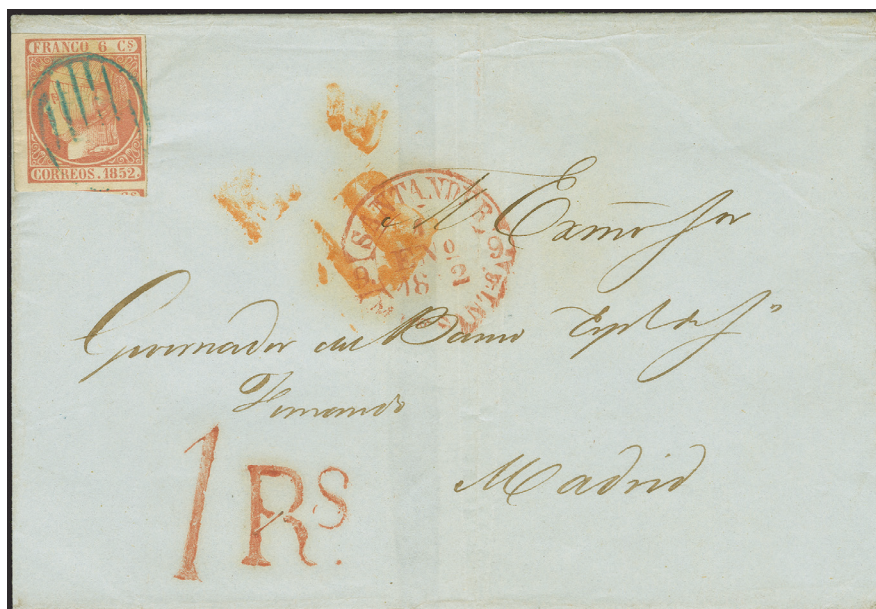 FRANCO 6 Cs
CORREOS. 1852.
SANTANDER
Exmo Sor
Governador del Banco Espl de Sn
Fernando
Madrid
1 Rs.